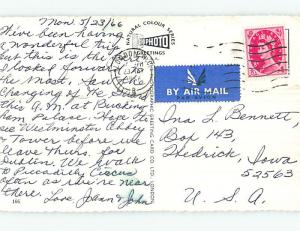 Mon. 5/23/66
We've been having
a wonderful trip
but this is the
I looked forward
the Most. Saw
Changing of the
this A.M. at Bucking
ham Palace. Hope to
see Westminster Abbey
& Tower before we
leave Thurs. for
Dublin. We walk
to Piccadilly Circus
often as we're near
there. Love Jean & John
166
NATURAL COLOUR SERIES
PHOTO
GREETINGS
GREETING CARD CO. LTD., LONDON
BY AIR MAIL
PAR AVION
Ina L. Bennett,
Box 143,
Hedrick, Iowa
52563
U. S. A.